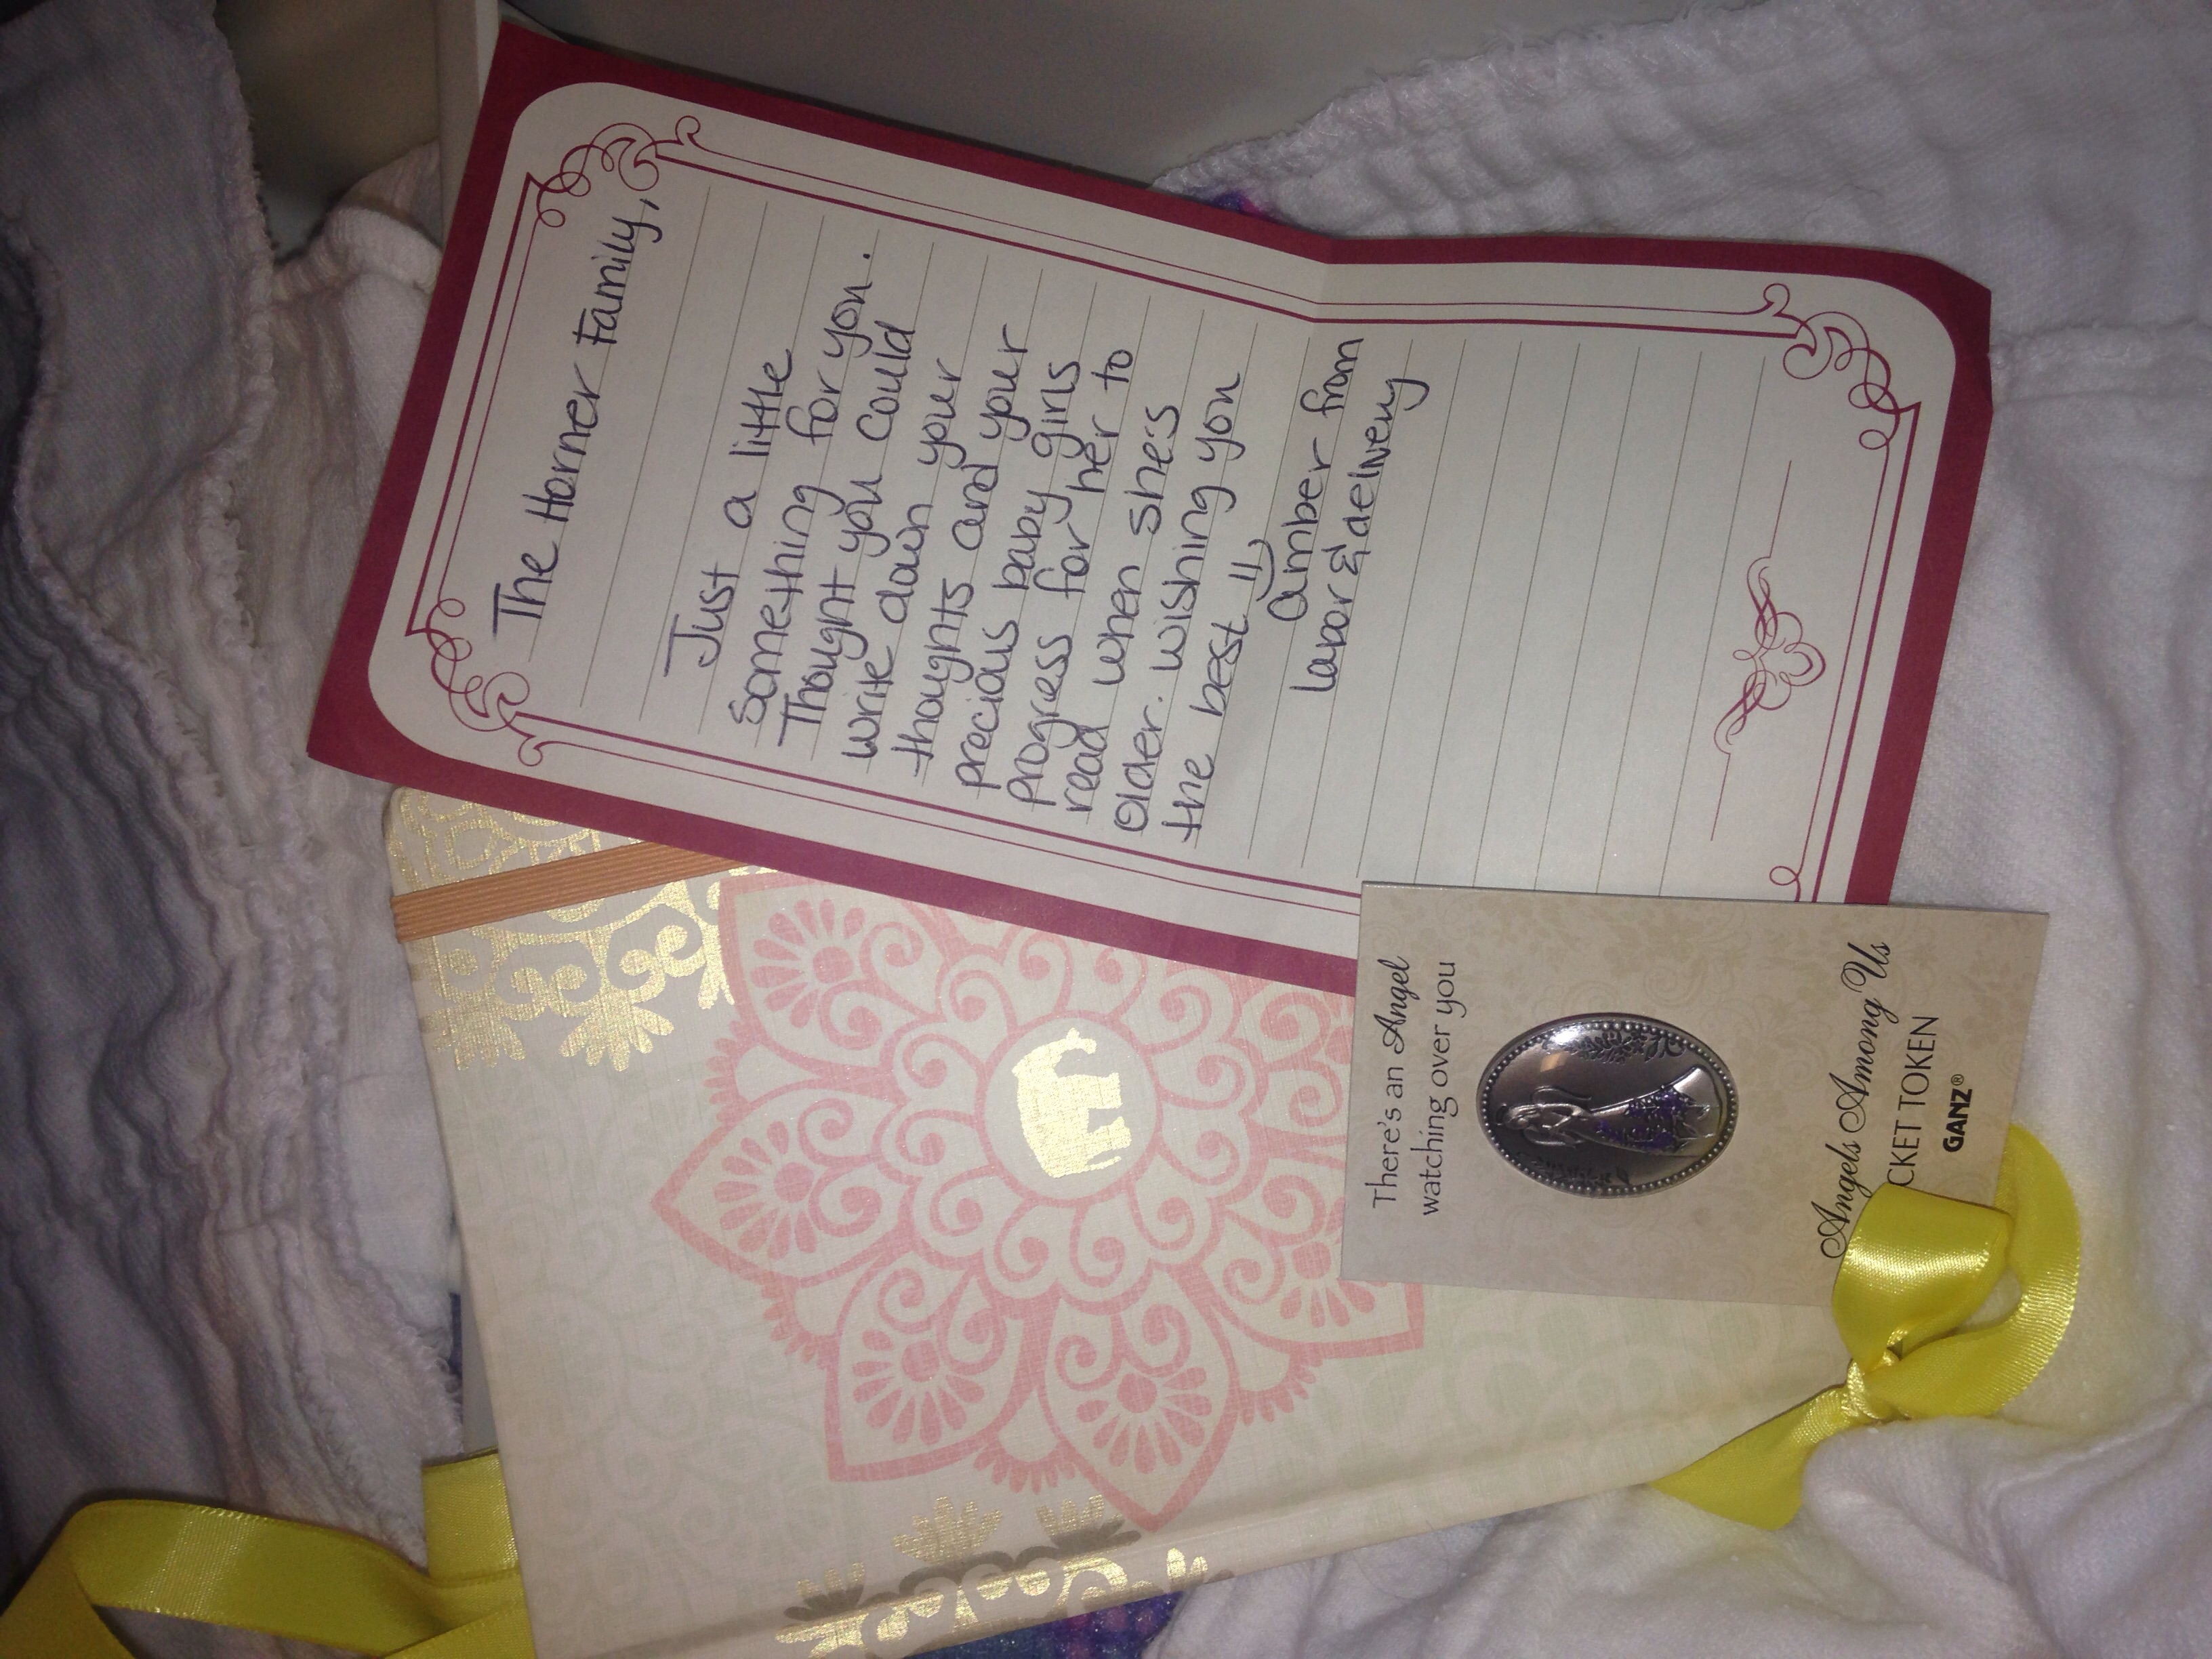 The Horner Family,
Just a little
something for you.
Thought you could
write down your
thoughts and your
precious baby girls
progress for her to
read when shes
older. wishing you
the best =)
Amber from
labor & delivery
There's an Angel
watching over you
Angels Among Us
CKET TOKEN
GANZ®